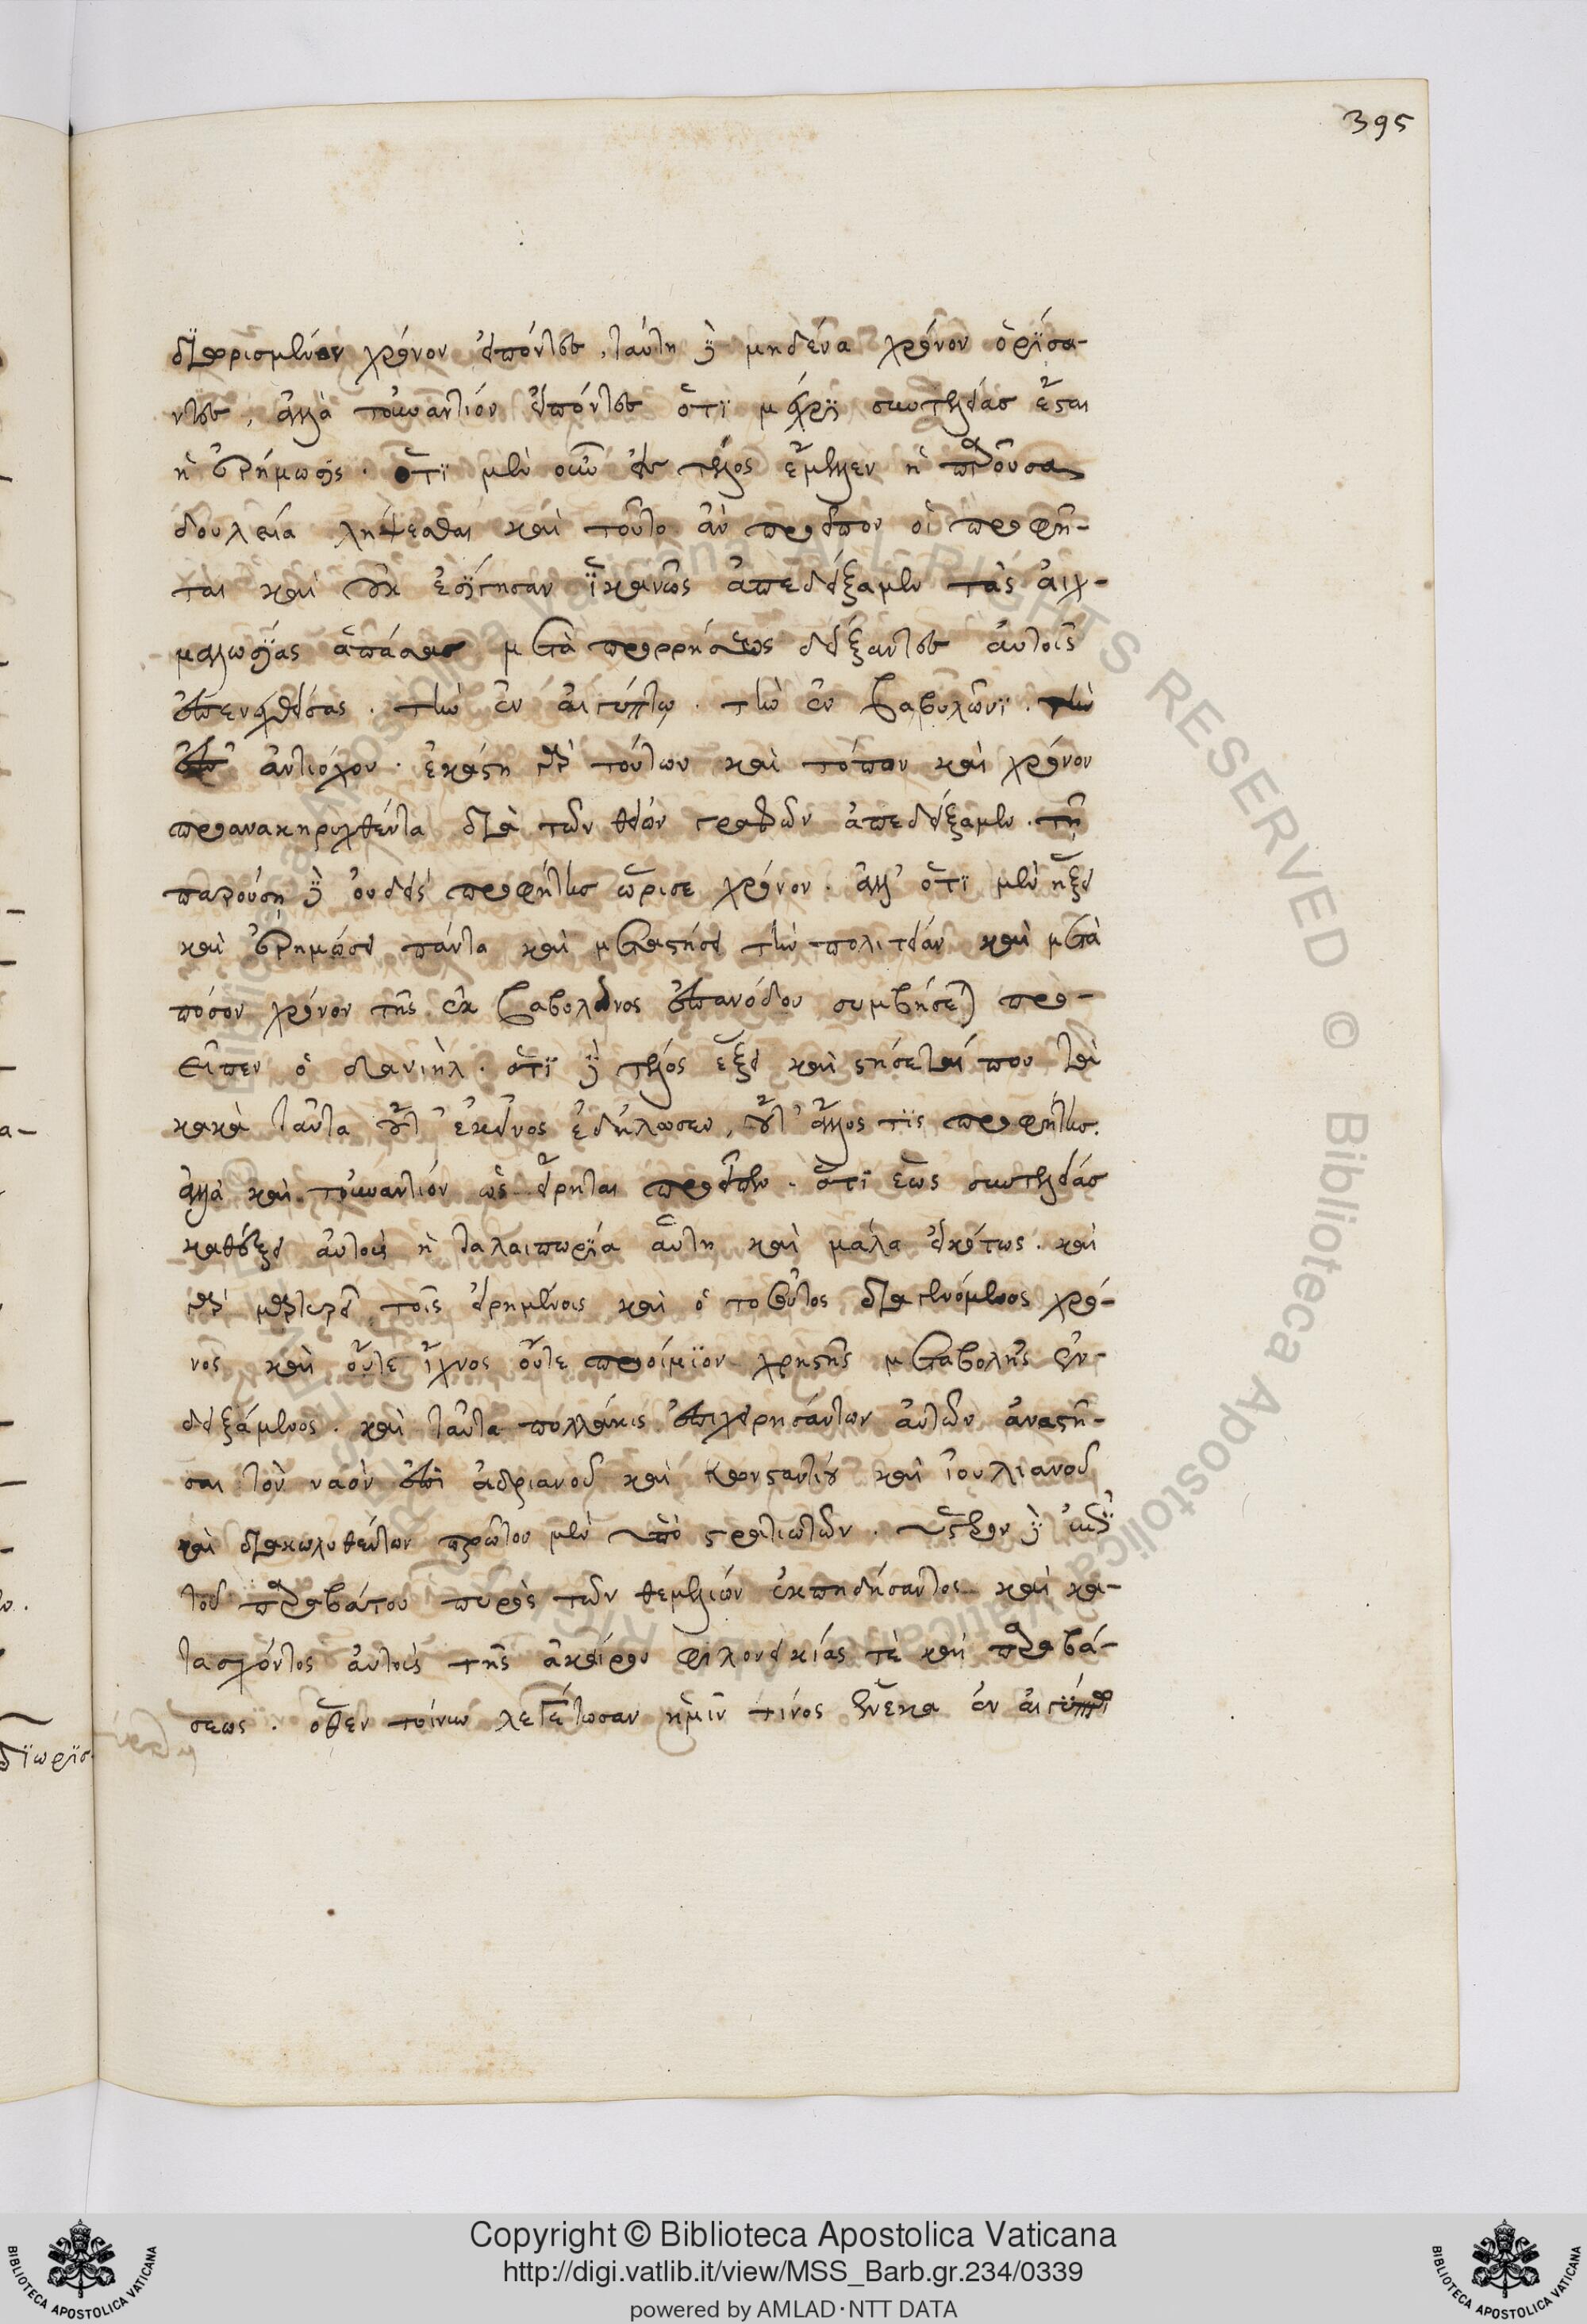 395
διωρισμένον χρόνον εἰπόντες, ταύτη δὲ μηδένα χρόνον ὁρίσα-
ντες, ἀλλὰ τοὐναντίον εἰπόντες ὅτϊ μέχρϊ συντελείας ἔσται
ἡ ἐρήμωσις. ὅτϊ μὲν οὖν εἰς τέλος ἔμελλεν ἡ παροῦσα
δουλεία λήψεσθαι καὶ τοῦτο ἂν προεῖπον οἱ προφῆ-
ται καὶ οὐκ ἐσίγησαν ἱκανῶς ἀπεδείξαμεν τὰς αἰχ-
μαλωσίας ἁπάσας μετὰ προρρήσεως δείξαντες αὐτοῖς
ἐπενεχθείσας. τὴν ἐν αἰγύπτω. τὴν ἐν βαβυλῶνϊ. τὴν
ἐπὶ ἀντιόχου. ἑκάστη γὰρ τούτων καὶ τόπον καὶ χρόνον
προανακηρυχθέντα διὰ τῶν θείων γραφῶν ἀπεδείξαμεν. τῆ
παρούση δὲ οὐδεὶς προφήτης ὥρισε χρόνον. ἀλλ' ὅτϊ μὲν ἥξει
καὶ ἐρημώσει πάντα καὶ μεταστήσει τὴν πολιτείαν καὶ μετὰ
πόσον χρόνον τῆς ἐκ βαβυλῶνος ἐπανόδου συμβήσεται προ-
εῖπεν ὁ δανιὴλ. ὅτϊ δὲ τέλος ἕξει καὶ στήσεταί που τὰ
κακὰ ταῦτα οὔτ' ἐκεῖνος ἐδήλωσεν, οὔτ' ἄλλος τὶς προφήτης.
ἀλλὰ καὶ τοὐναντίον ὡς εἴρηται προεῖπεν. ὅτϊ ἕως συντελείας
καθέξει αὐτοὺς ἡ ταλαιπωρία αὕτη καὶ μάλα εἰκότως. καὶ
γὰρ μαρτυρεῖ τοῖς εἰρημένοις καὶ ὁ τοσοῦτος διαγενόμενος χρό-
νος καὶ οὔτε ἴχνος οὔτε προοίμϊον χρηστῆς μεταβολῆς ἐν-
δειξάμενος. καὶ ταῦτα πολλάκις ἐπιχειρησάντων αὐτῶν ἀναστῆ-
σαι τὸν ναὸν ἐπὶ ἀδριανοῦ καὶ κωνσταντίου καὶ ἰουλιανοῦ
καὶ διακωλυθέντων πρῶτον μὲν ὑπὸ στρατιωτῶν. ὕστερον δὲ ὑπὸ
τοῦ παραβάτου πυρὸς τῶν θεμελίων ἐκπηδήσαντος καὶ κα-
τασχόντος αὐτοὺς τῆς ἀκαίρου φιλονεικίας τὲ καὶ παραβά-
σεως. ὅθεν τοίνυν λεγέτωσαν ἡμῖν τίνος ἕνεκα ἐν αἰγύπτω